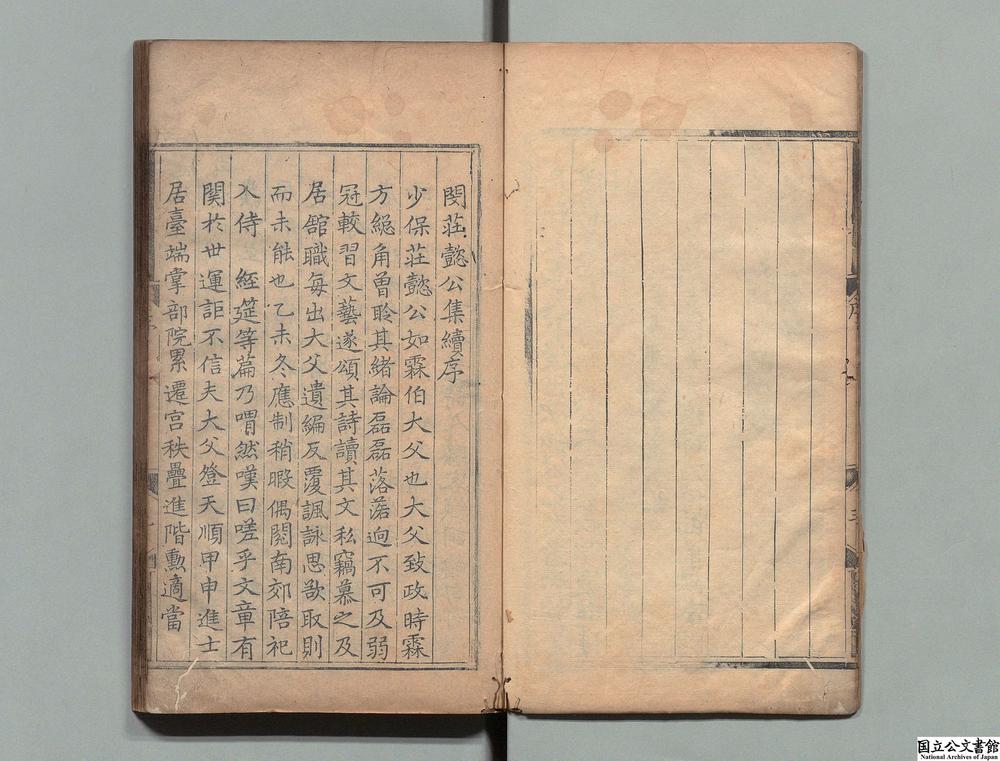 序
三
閔莊懿公集續序
少保莊懿公如霖伯大父也大父致政時霖
方緫角曾聆其緒論磊磊落落逈不可及弱
冠較習文藝遂頌其詩讀其文私竊慕之及
居舘職毎出大父遺編反覆諷詠思欲取則
而未能也乙未冬應制稍暇偶閱南郊陪祀
入侍 經筵等篇乃喟然嘆曰嗟乎文章有
関於世運詎不信夫大父登天順甲申進士
居臺端掌部院累遷宮秩疊進階勲適當
国立公文書館
National Archives of Japan